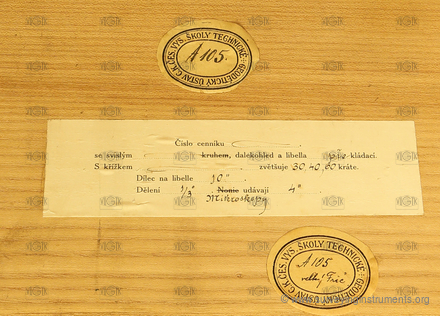 GEODETICKÝ ÚSTAV C.K. ČES. VYS. ŠKOLY TECHNICKÉ
A 105.
Číslo cenníku
se svislým kruhem, dalekohled a libella kládací.
S křížkem zvětšuje 30, 40, 60 kráte.
Dílec na libelle 10"
Dělení 1/3° Nonie udávají 4"
Mikroskopy
GEODETICKÝ ÚSTAV C.K. ČES. VYS. ŠKOLY TECHNICKÉ
A 105
velký Frič
instruments.org